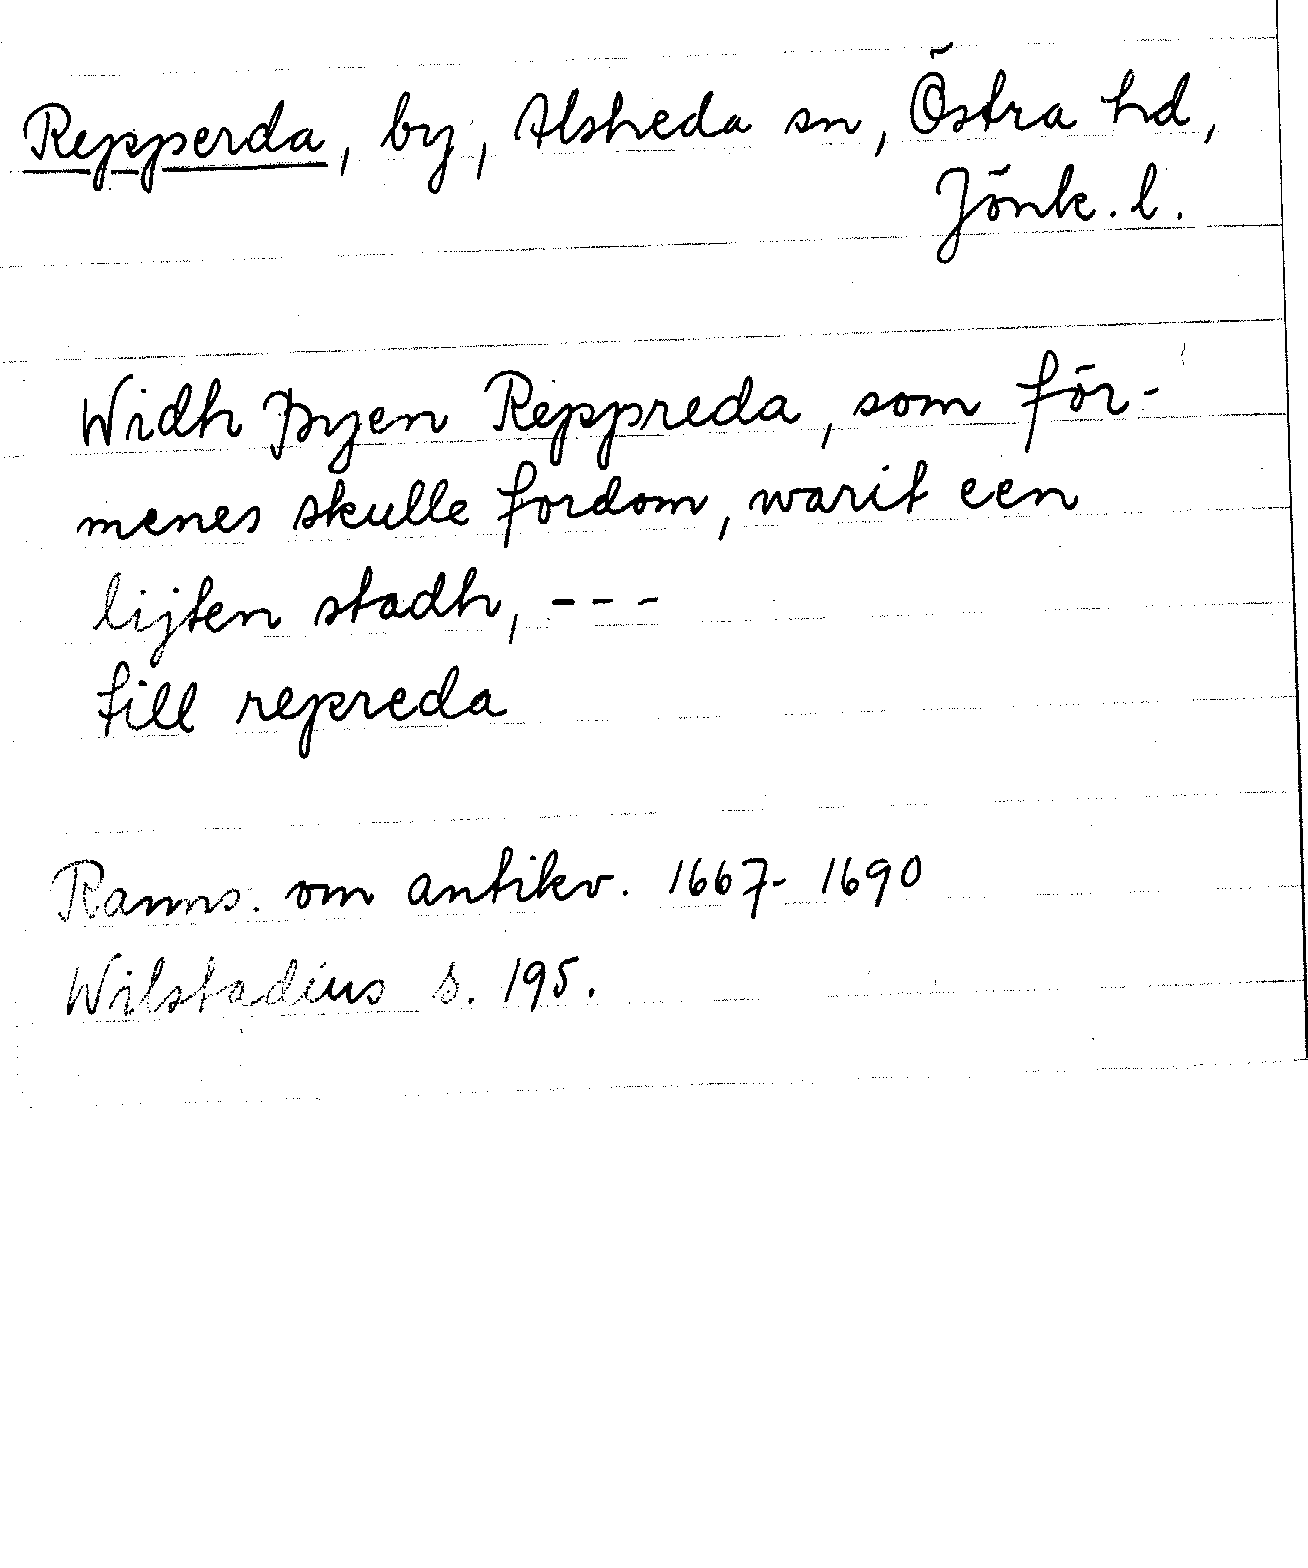 Repperda, by, Alsheda sn, Östra hd,
Jönk. l.
Widh Byen Reppreda, som för-
menes skulle fordom, warit een
lijten stadh, ---
till repreda
Ranns. om antikv. 1667-1690
Wilstadius s. 195.